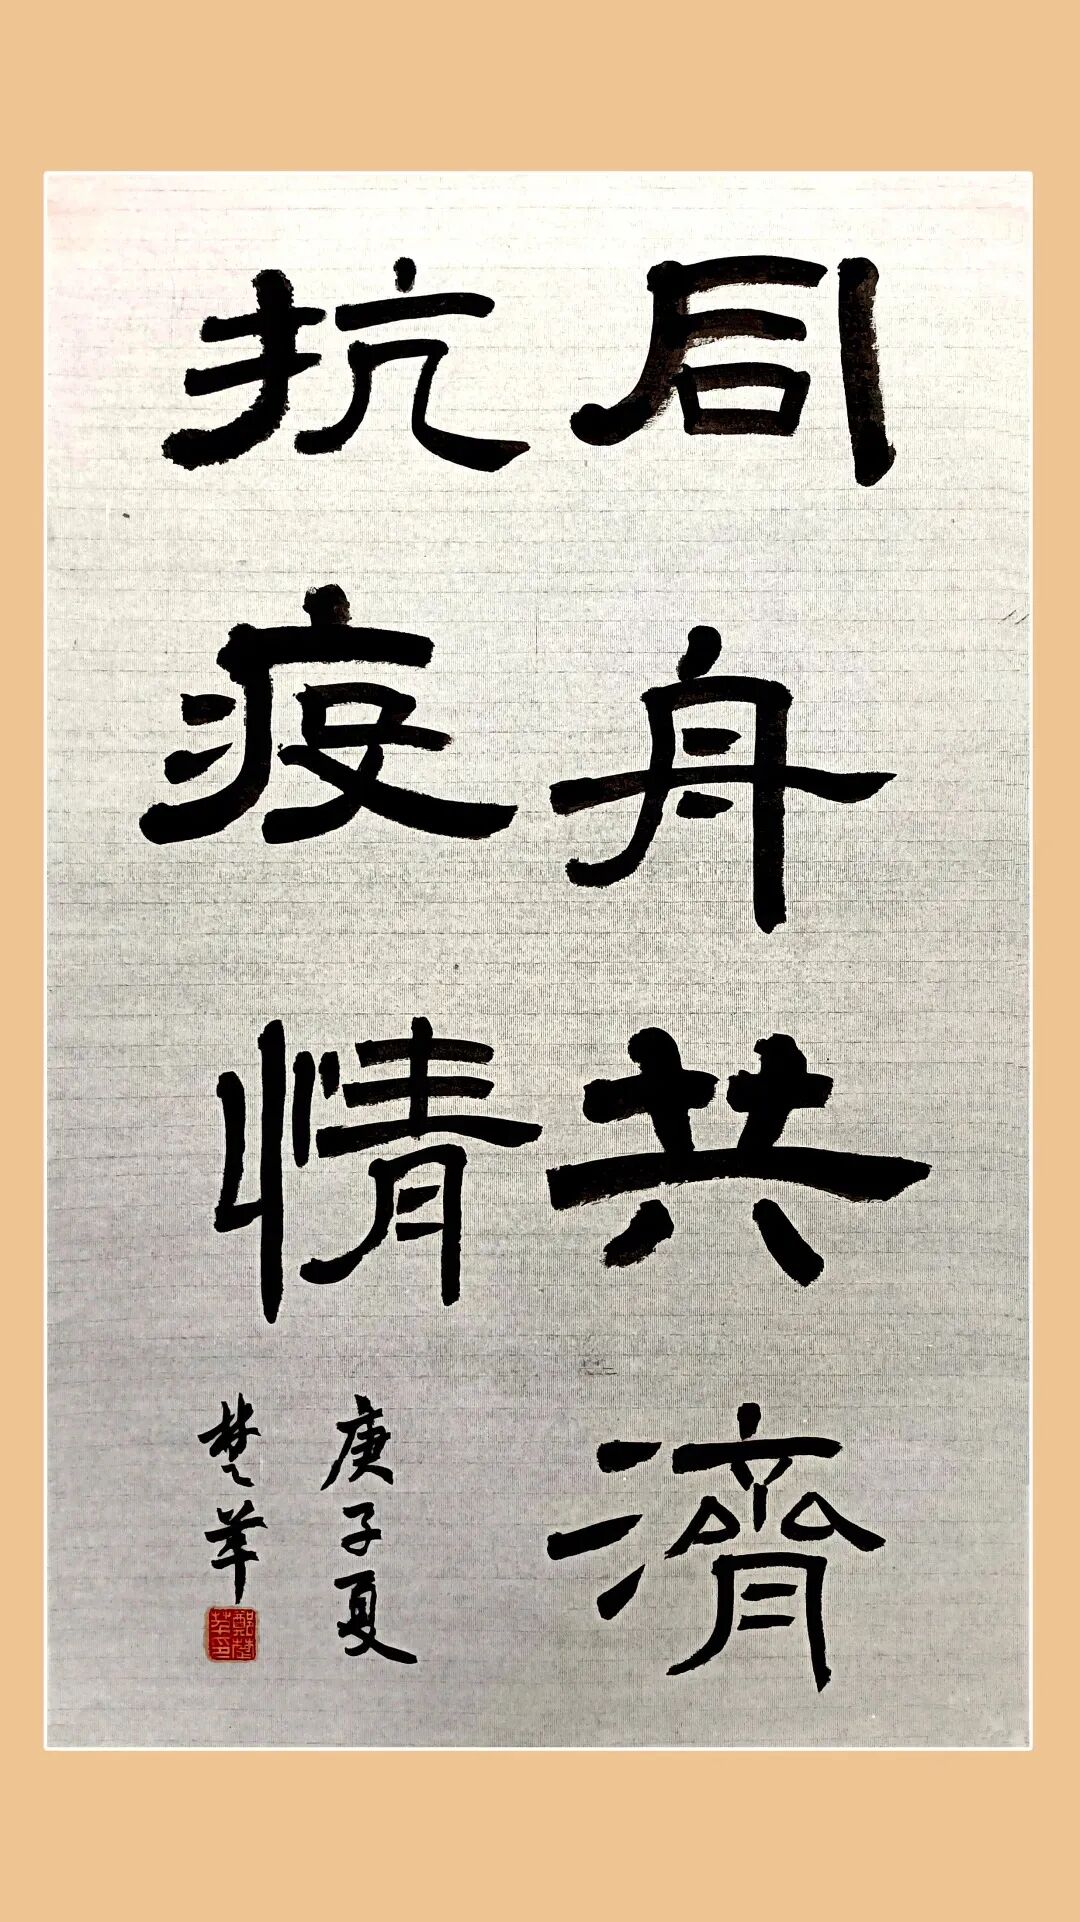 同舟共濟
抗疫情
庚子夏
楚